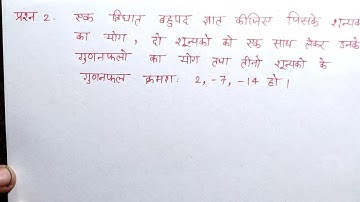 प्रश्न 2. एक त्रिघात बहुपद ज्ञात कीजिए जिसके शून्यक
का योग, दो शून्यको को एक साथ लेकर उनके
गुणनफलो का योग तथा तीनो शून्यको के
गुणनफल क्रमशः 2, -7, -14 हो।